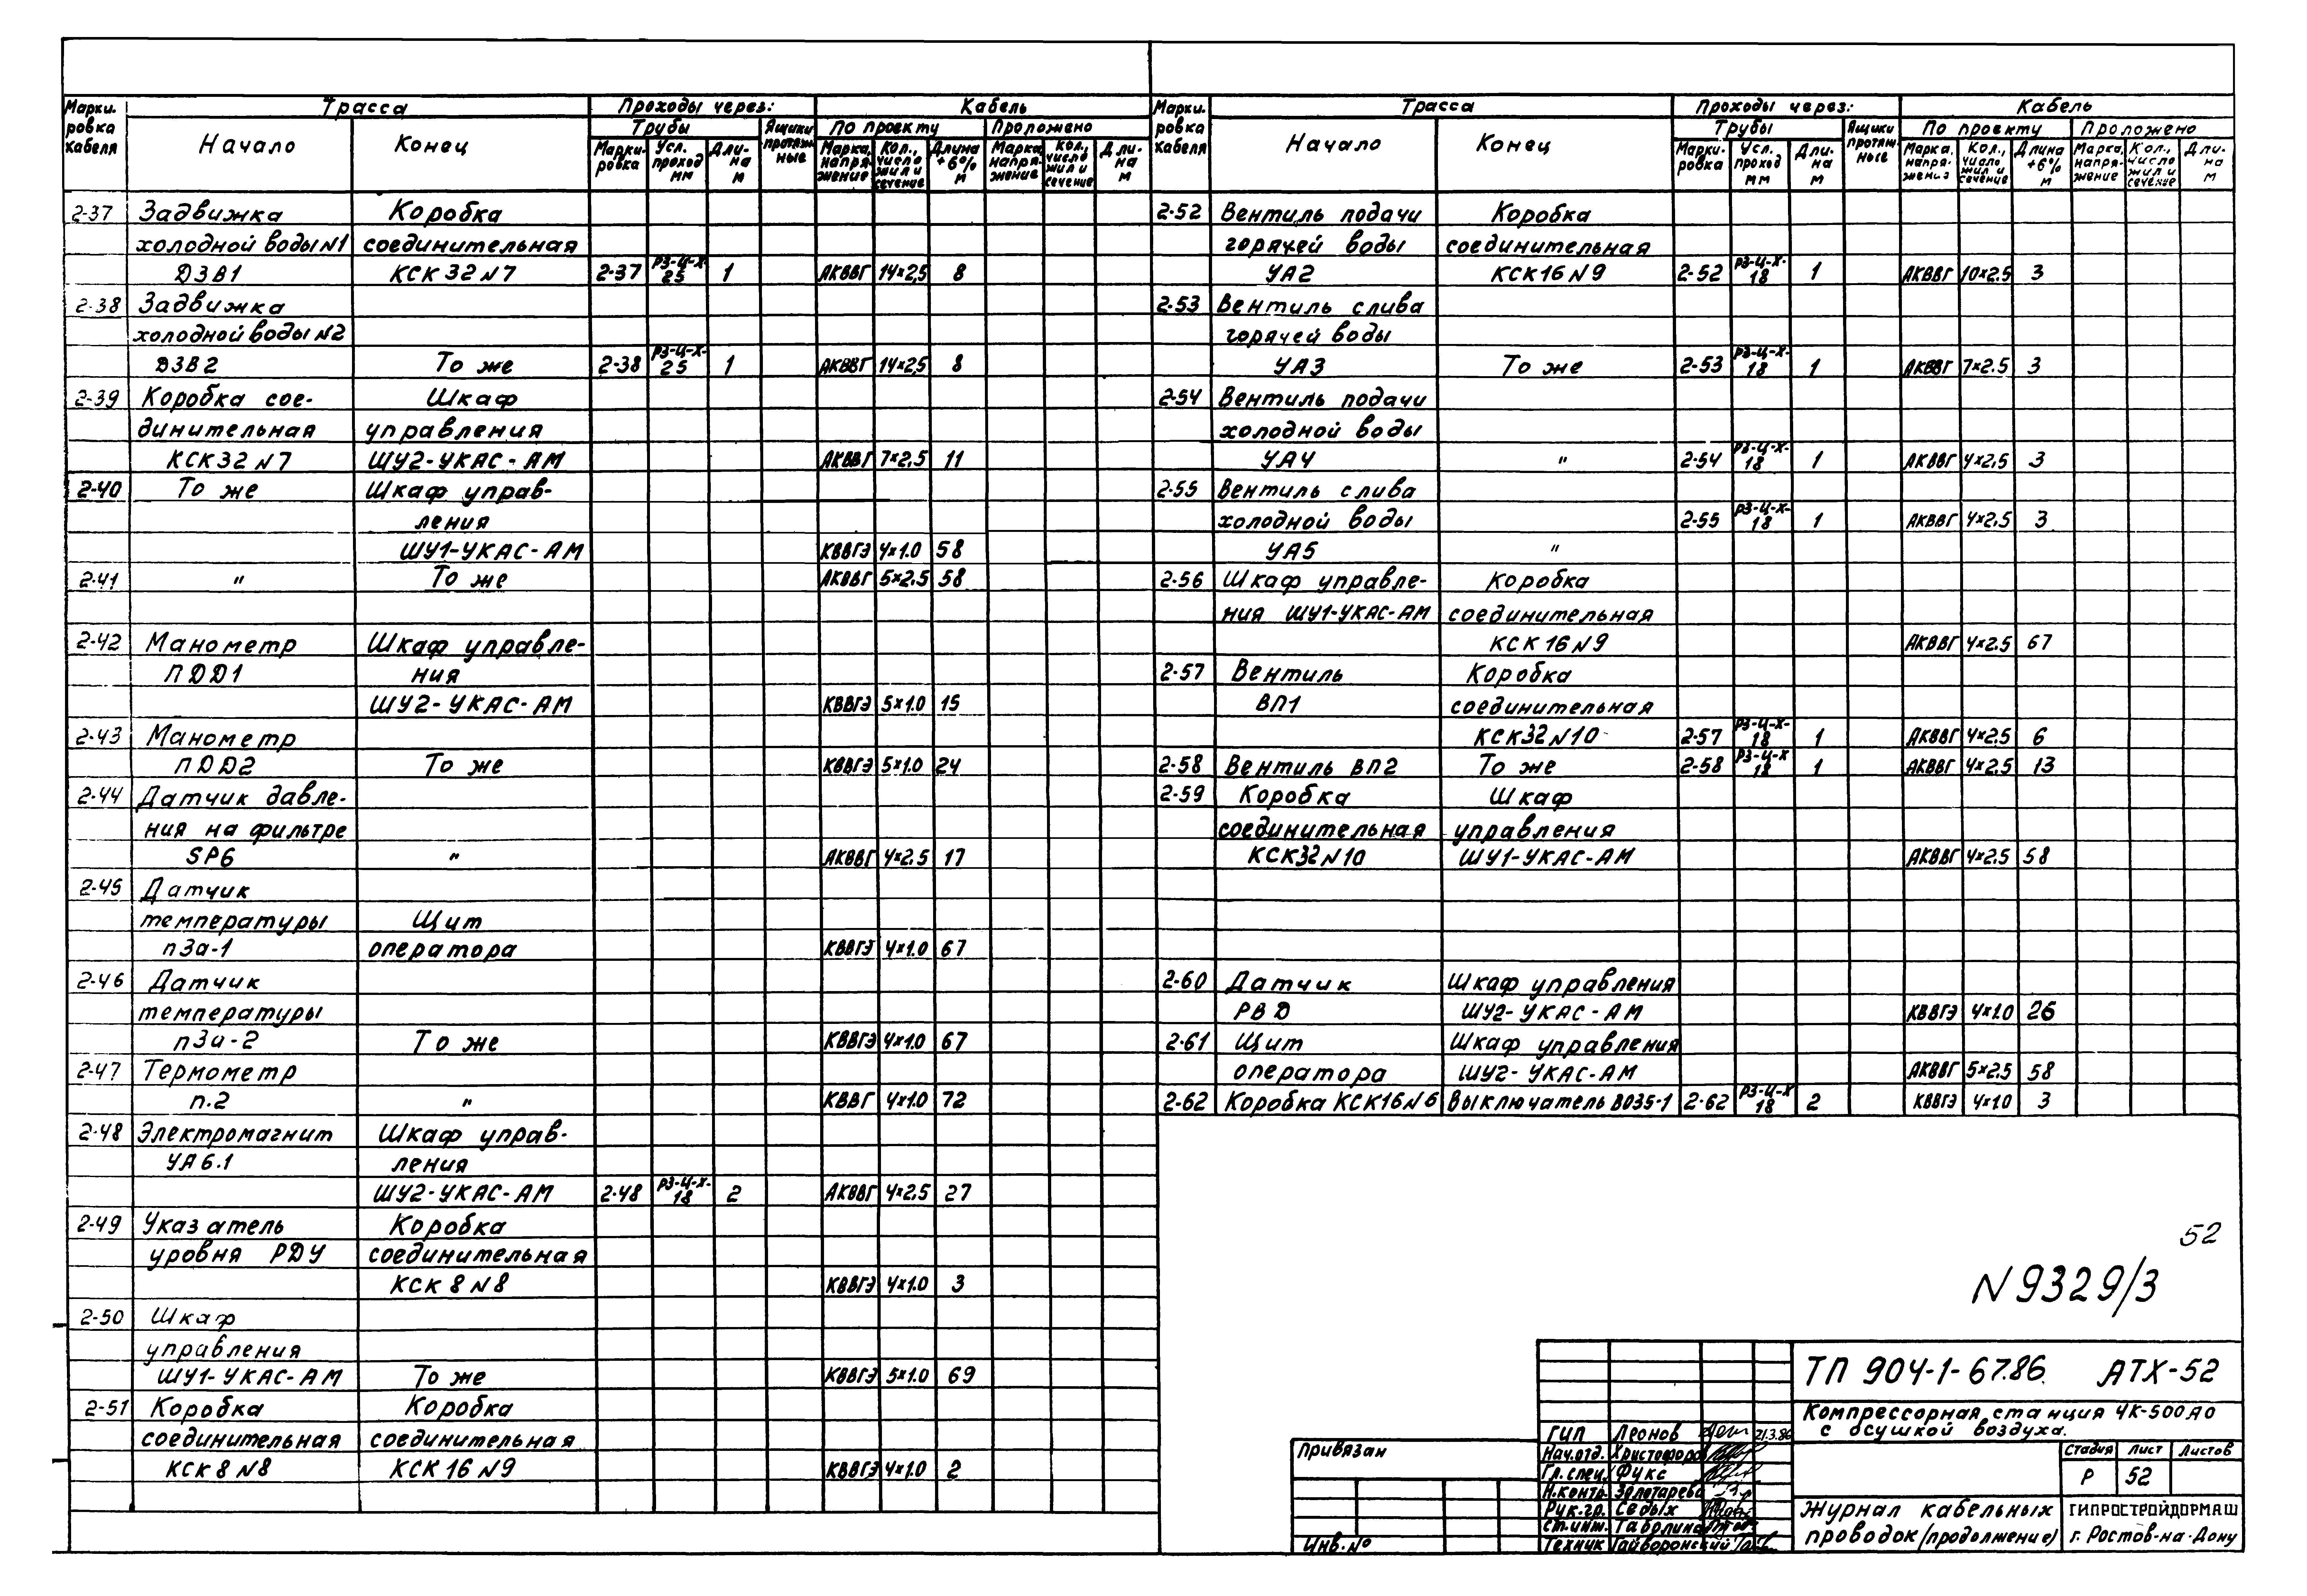 Марки-ровка кабеля | Трасса | Проходы через: | Кабель
Начало | Конец | Трубы | Ящики протяжные | По проекту | Проложено
Марки-ровка | Усл. проход мм | Дли-на м | Марка, напря-жение | Кол., число жил и сечение | Длина +6% м | Марка, напря-жение | Кол., число жил и сечение | Дли-на м
2-37 Задвижка Коробка
холодной воды N1 соединительная
ДЗВ1 КСК 32 N7 2-37 РЗ-Ц-Х-25 1 АКВВГ 14×2,5 8
2-38 Задвижка
холодной воды N2
ДЗВ2 То же 2-38 РЗ-Ц-Х-25 1 АКВВГ 14×2,5 8
2-39 Коробка сое- Шкаф
динительная управления
КСК 32 N7 ШУ2-УКАС-АМ АКВВГ 7×2,5 11
2-40 То же Шкаф управ-
ления
ШУ1-УКАС-АМ КВВГЭ 4×1.0 58
2-41 " То же АКВВГ 5×2.5 58
2-42 Манометр Шкаф управле-
ПДД1 ния
ШУ2-УКАС-АМ КВВГЭ 5×1.0 15
2-43 Манометр
ПДД2 То же КВВГЭ 5×1.0 24
2-44 Датчик давле-
ния на фильтре
SP6 " АКВВГ 4×2.5 17
2-45 Датчик
температуры Щит
п3а-1 оператора КВВГЭ 4×1.0 67
2-46 Датчик
температуры
п3а-2 То же КВВГЭ 4×1.0 67
2-47 Термометр
п.2 " КВВГ 4×1.0 72
2-48 Электромагнит Шкаф управ-
УА6.1 ления
ШУ2-УКАС-АМ 2-48 РЗ-Ц-Х-18 2 АКВВГ 4×2.5 27
2-49 Указатель Коробка
уровня РДУ соединительная
КСК 8 N8 КВВГЭ 4×1.0 3
2-50 Шкаф
управления
ШУ1-УКАС-АМ То же КВВГЭ 5×1.0 69
2-51 Коробка Коробка
соединительная соединительная
КСК 8 N8 КСК 16 N9 КВВГЭ 4×1.0 2
Марки-ровка кабеля | Трасса | Проходы через: | Кабель
Начало | Конец | Трубы | Ящики протяжные | По проекту | Проложено
Марки-ровка | Усл. проход мм | Дли-на м | Марка, напря-жение | Кол., число жил и сечение | Длина +6% м | Марка, напря-жение | Кол., число жил и сечение | Дли-на м
2-52 Вентиль подачи Коробка
горячей воды соединительная
УА2 КСК16 N9 2-52 РЗ-Ц-Х-18 1 АКВВГ 10×2.5 3
2-53 Вентиль слива
горячей воды
УА3 То же 2-53 РЗ-Ц-Х-18 1 АКВВГ 7×2.5 3
2-54 Вентиль подачи
холодной воды
УА4 " 2-54 РЗ-Ц-Х-18 1 АКВВГ 4×2,5 3
2-55 Вентиль слива
холодной воды 2-55 РЗ-Ц-Х-18 1 АКВВГ 4×2,5 3
УА5 "
2-56 Шкаф управле- Коробка
ния ШУ1-УКАС-АМ соединительная
КСК 16 N9 АКВВГ 4×2.5 67
2-57 Вентиль Коробка
ВП1 соединительная
КСК32 N10 2-57 РЗ-Ц-Х-18 1 АКВВГ 4×2.5 6
2-58 Вентиль ВП2 То же 2-58 РЗ-Ц-Х 18 1 АКВВГ 4×2.5 13
2-59 Коробка Шкаф
соединительная управления
КСК32 N10 ШУ1-УКАС-АМ АКВВГ 4×2.5 58
2-60 Датчик Шкаф управления
РВД ШУ2-УКАС-АМ КВВГЭ 4×1.0 26
2-61 Щит Шкаф управления
оператора ШУ2-УКАС-АМ АКВВГ 5×2.5 58
2-62 Коробка КСК16 N6 Выключатель ВО35-1 2-62 РЗ-Ц-Х 18 2 КВВГЭ 4×1.0 3
52
N9329/3
ТП 904-1-67.86. АТХ-52
Компрессорная станция 4К-500АО
с осушкой воздуха.
Стадия Лист Листов
Р 52
Журнал кабельных
проводок (продолжение)
ГИПРОСТРОЙДОРМАШ
г. Ростов-на-Дону
ГИП Леонов 21.3.86
Нач.отд. Христофоров
Гл.спец. Фукс
Н.контр. Золотарева
Рук.гр. Седых
Ст.инж. Таволина
Техник Гайворонский
Привязан
Инв.№